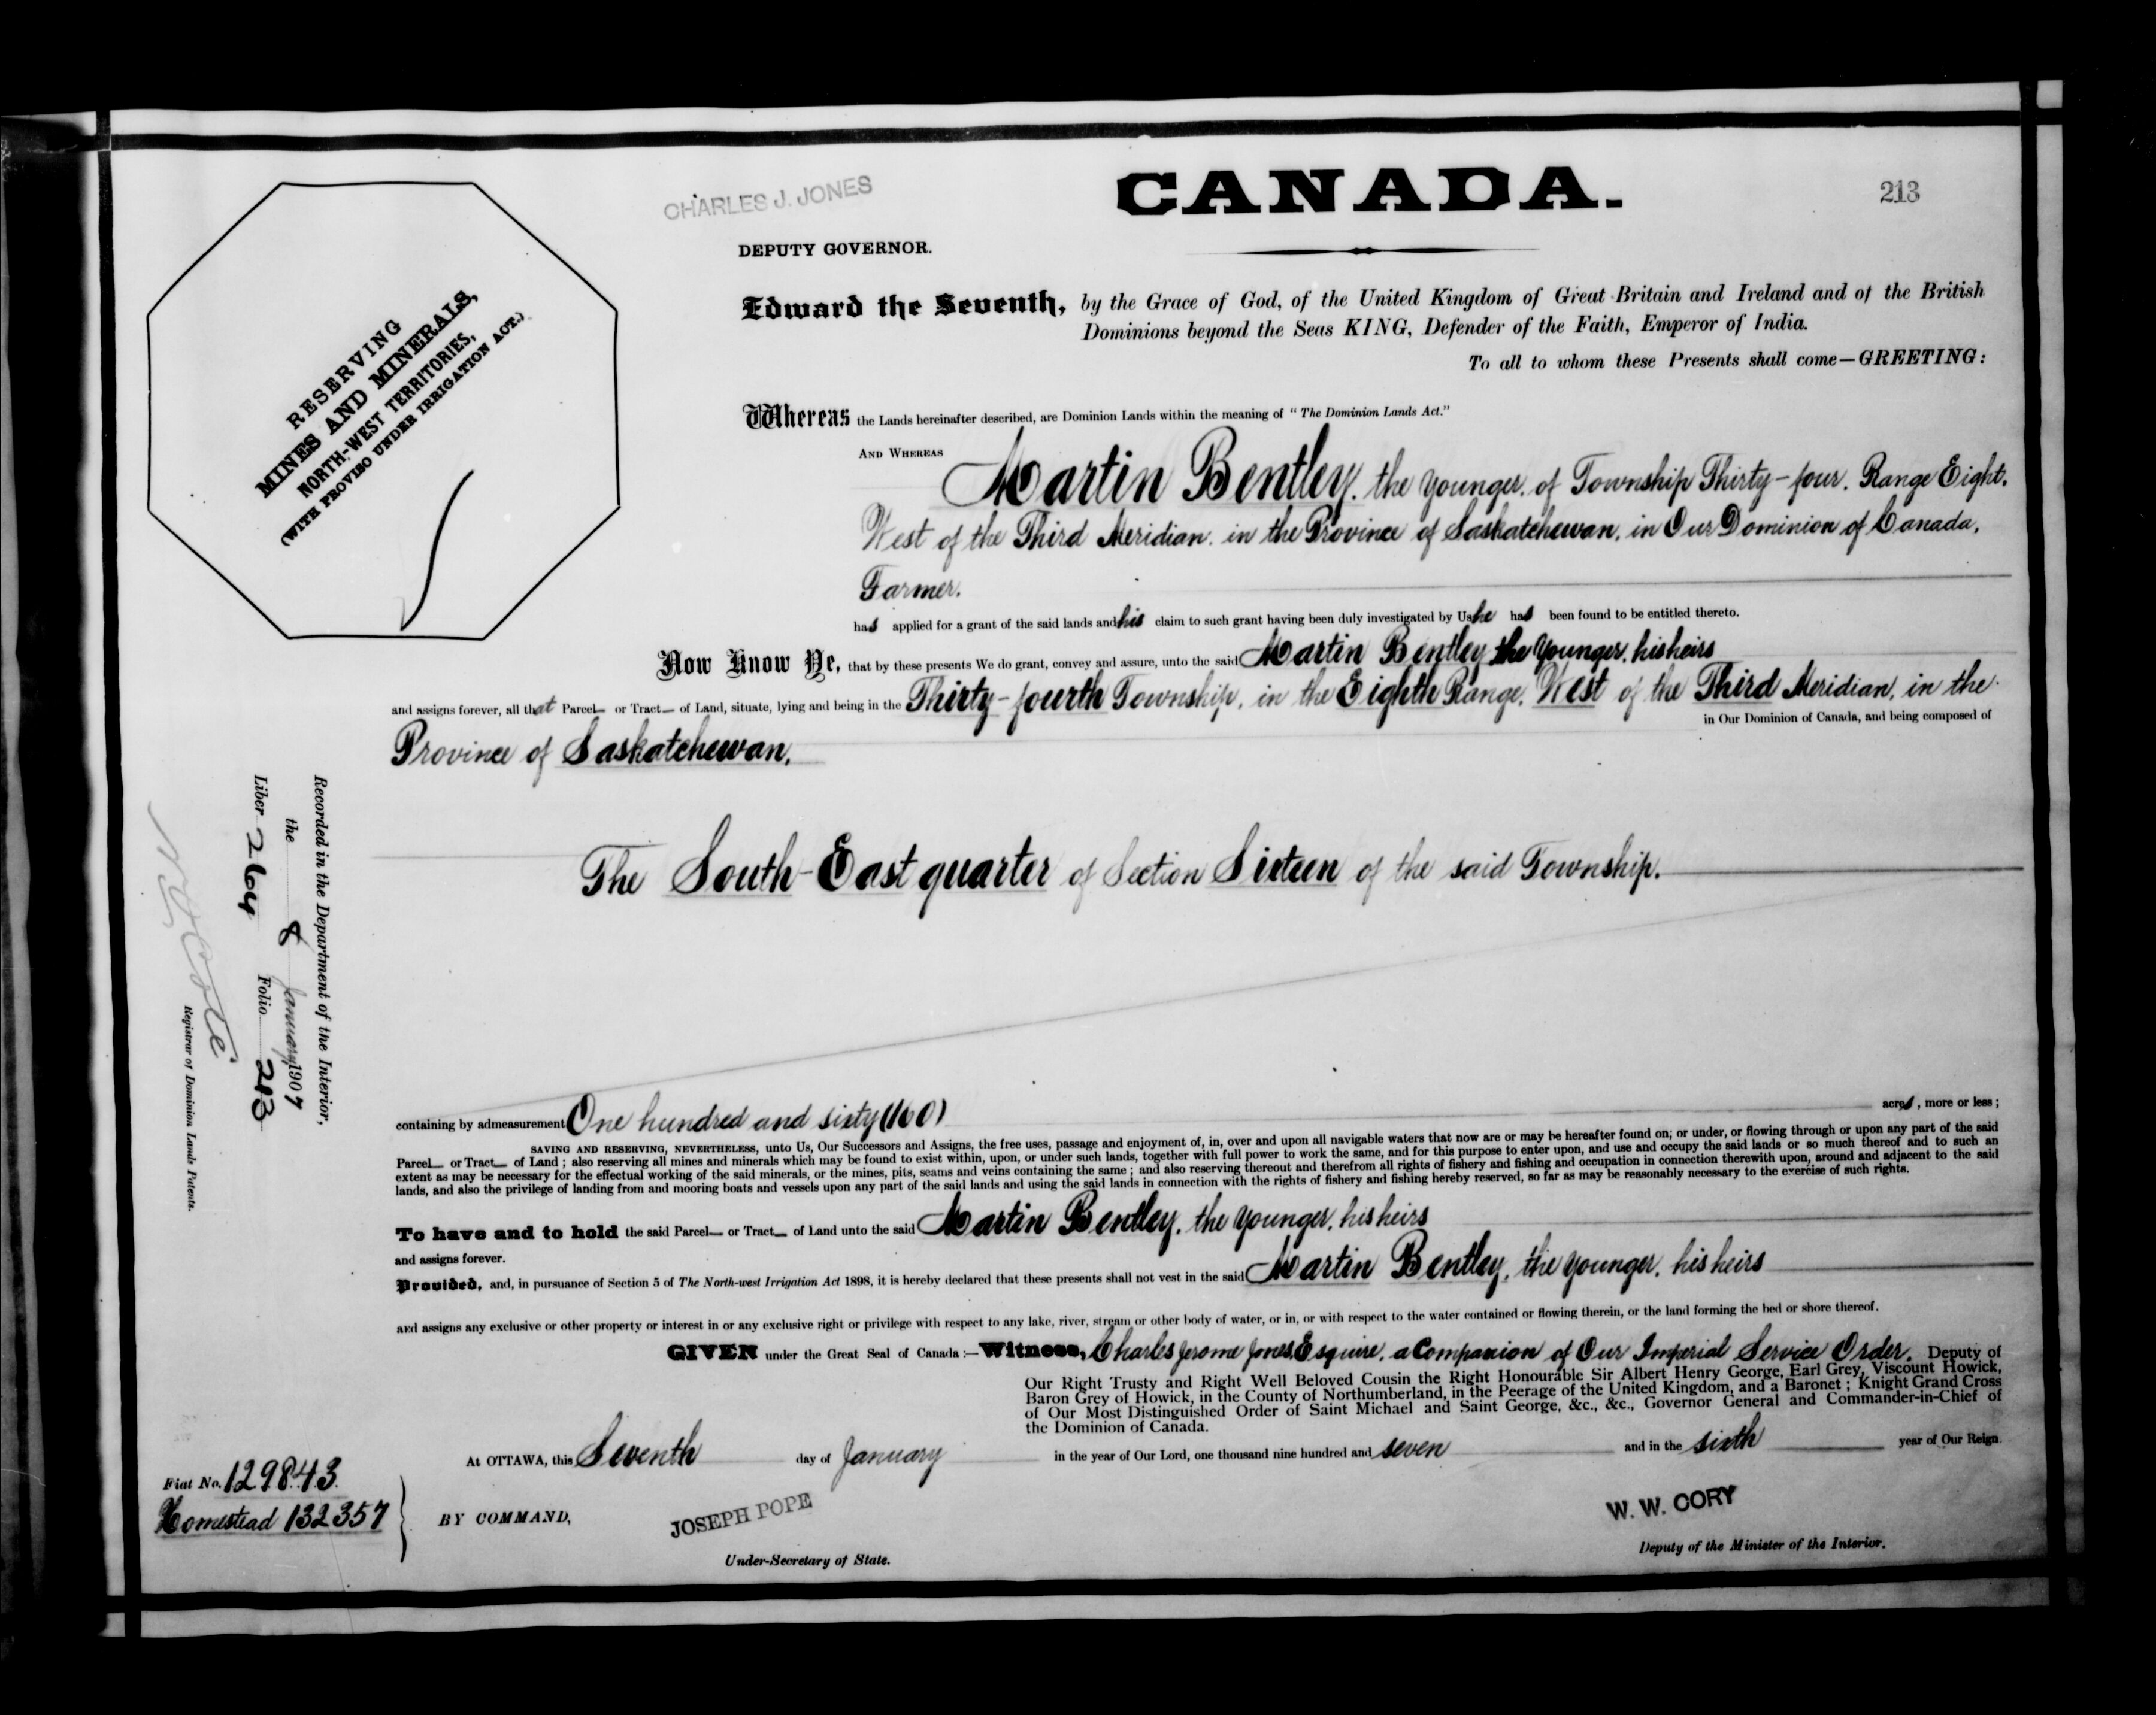 CANADA.
213
CHARLES J. JONES
DEPUTY GOVERNOR.
RESERVING
MINES AND MINERALS,
NORTH-WEST TERRITORIES,
(WITH PROVISO UNDER IRRIGATION ACT.)
Edward the Seventh, by the Grace of God, of the United Kingdom of Great Britain and Ireland and of the British
Dominions beyond the Seas KING, Defender of the Faith, Emperor of India.
To all to whom these Presents shall come—GREETING:
Whereas the Lands hereinafter described, are Dominion Lands within the meaning of "The Dominion Lands Act."
AND WHEREAS Martin Bentley, the younger, of Township Thirty-four, Range Eight,
West of the Third Meridian, in the Province of Saskatchewan, in Our Dominion of Canada,
Farmer.
has applied for a grant of the said lands and his claim to such grant having been duly investigated by Us he has been found to be entitled thereto.
Now Know Ye, that by these presents We do grant, convey and assure, unto the said Martin Bentley the Younger, his heirs
and assigns forever, all that Parcel or Tract of Land, situate, lying and being in the Thirty-fourth Township, in the Eighth Range, West of the Third Meridian, in the
in Our Dominion of Canada, and being composed of
Province of Saskatchewan,
The South-East quarter of Section Sixteen of the said Township.
Recorded in the Department of the Interior,
the 8 January 1907
Liber 264 Folio 213
N O Coté
Registrar of Dominion Lands Patents.
containing by admeasurement One hundred and sixty (160) acres, more or less;
SAVING AND RESERVING, NEVERTHELESS, unto Us, Our Successors and Assigns, the free uses, passage and enjoyment of, in, over and upon all navigable waters that now are or may be hereafter found on; or under, or flowing through or upon any part of the said
Parcel or Tract of Land; also reserving all mines and minerals which may be found to exist within, upon, or under such lands, together with full power to work the same, and for this purpose to enter upon, and use and occupy the said lands or so much thereof and to such an
extent as may be necessary for the effectual working of the said minerals, or the mines, pits, seams and veins containing the same; and also reserving thereout and therefrom all rights of fishery and fishing and occupation in connection therewith upon, around and adjacent to the said
lands, and also the privilege of landing from and mooring boats and vessels upon any part of the said lands and using the said lands in connection with the rights of fishery and fishing hereby reserved, so far as may be reasonably necessary to the exercise of such rights.
To have and to hold the said Parcel or Tract of Land unto the said Martin Bentley, the younger, his heirs
and assigns forever.
Provided, and, in pursuance of Section 5 of The North-west Irrigation Act 1898, it is hereby declared that these presents shall not vest in the said Martin Bentley, the younger, his heirs
and assigns any exclusive or other property or interest in or any exclusive right or privilege with respect to any lake, river, stream or other body of water, or in, or with respect to the water contained or flowing therein, or the land forming the bed or shore thereof.
GIVEN under the Great Seal of Canada:—Witness, Charles Jerome Jones, Esquire, a Companion of Our Imperial Service Order, Deputy of
Our Right Trusty and Right Well Beloved Cousin the Right Honourable Sir Albert Henry George, Earl Grey, Viscount Howick,
Baron Grey of Howick, in the County of Northumberland, in the Peerage of the United Kingdom, and a Baronet; Knight Grand Cross
of Our Most Distinguished Order of Saint Michael and Saint George, &c., &c., Governor General and Commander-in-Chief of
the Dominion of Canada.
At OTTAWA, this Seventh day of January in the year of Our Lord, one thousand nine hundred and seven and in the sixth year of Our Reign.
Fiat No. 129843.
Homestead 132357
BY COMMAND,
JOSEPH POPE
Under-Secretary of State.
W. W. CORY
Deputy of the Minister of the Interior.